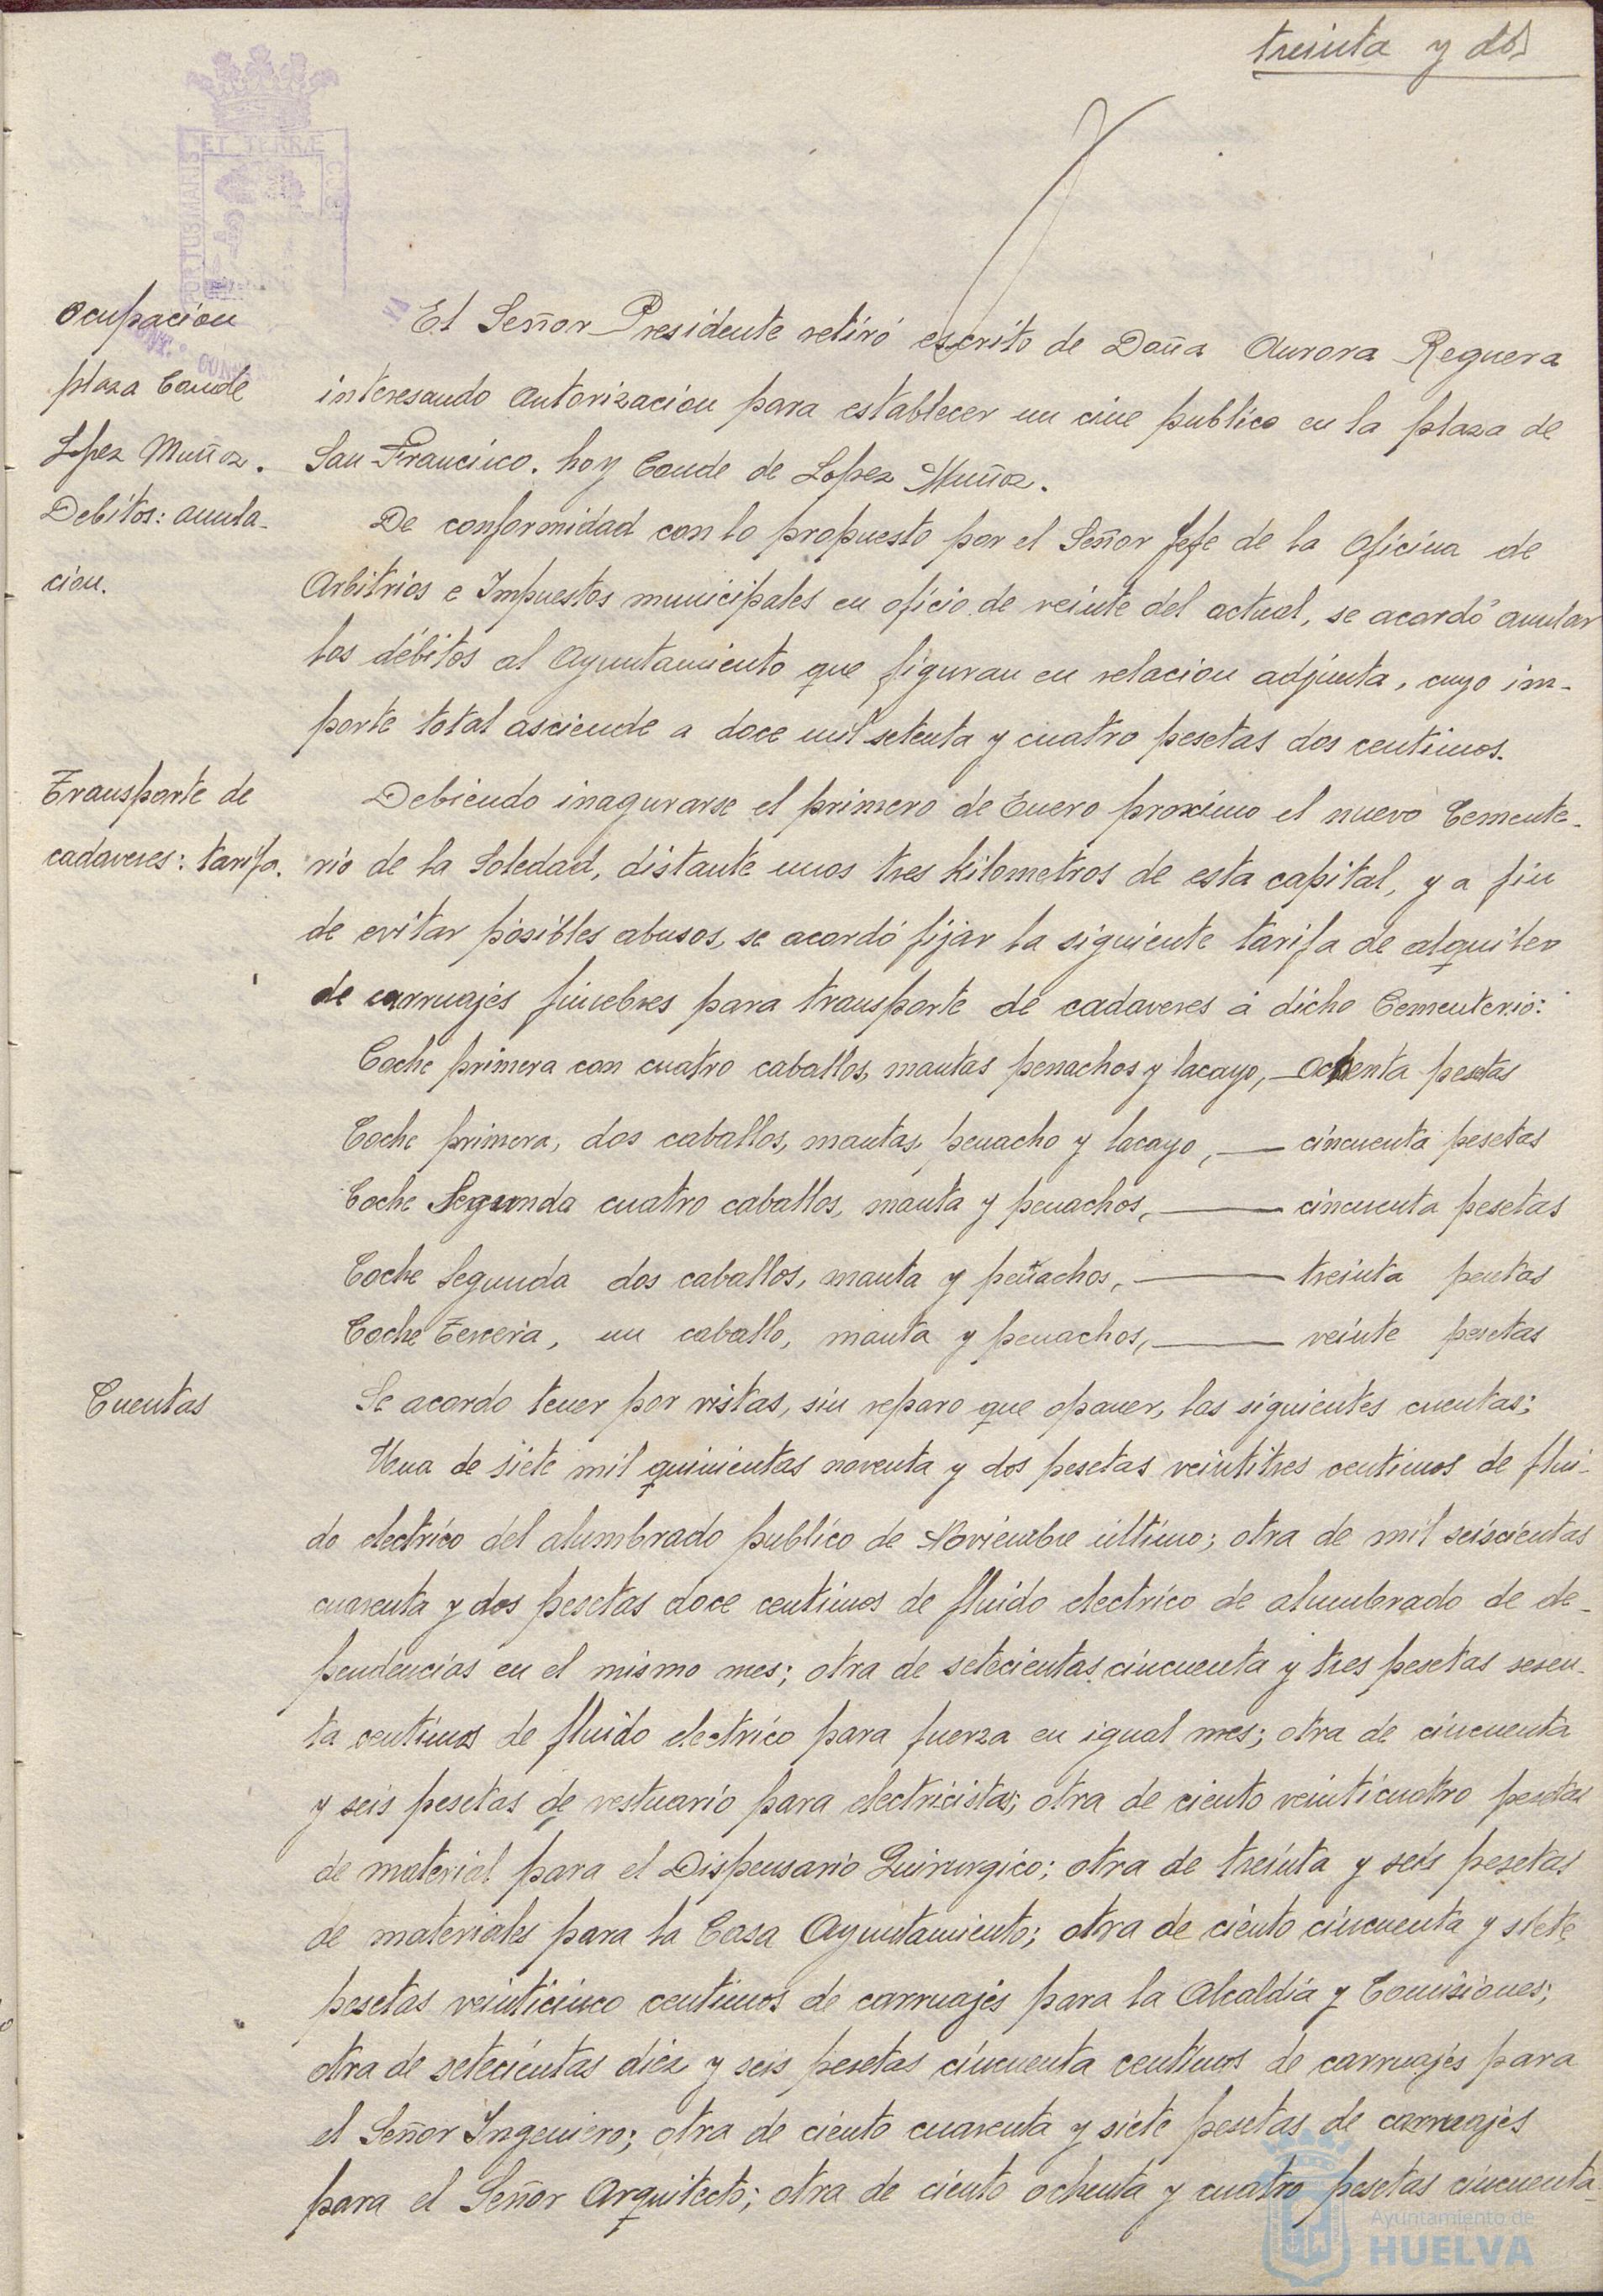 treinta y dos
ET TERRÆ
PORTUS MARIS
Ocupacion
plaza Conde
Lopez Muñoz.
El Señor Presidente retiró escrito de Doña Aurora Reguera
interesando autorizacion para establecer un cine publico en la plaza de
San Francisco. hoy Conde de Lopez Muñoz.
Debitos: anula-
cion.
De conformidad con lo propuesto por el Señor Jefe de la Oficina de
Arbitrios e Impuestos municipales en oficio de veinte del actual, se acordó anular
los débitos al Ayuntamiento que figuran en relacion adjunta, cuyo im-
porte total asciende a doce mil setenta y cuatro pesetas dos centimos.
Transporte de
cadaveres: tarifa.
Debiendo inagurarse el primero de Enero proximo el nuevo Cemente-
rio de la Soledad, distante unos tres kilometros de esta capital, y a fin
de evitar posibles abusos, se acordó fijar la siguiente tarifa de alquiler
de carruajes fúnebres para transporte de cadaveres a dicho Cementerio:
Coche primera con cuatro caballos, mantas penachos y lacayo, — ochenta pesetas
Coche primera, dos caballos, mantas, penacho y lacayo, — cincuenta pesetas
Coche Segunda cuatro caballos, manta y penachos, — cincuenta pesetas
Coche Segunda dos caballos, manta y penachos, — treinta pesetas
Coche Tercera, un caballo, manta y penachos, — veinte pesetas
Cuentas
Se acordo tener por vistas, sin reparo que oponer, las siguientes cuentas:
Una de siete mil quinientas noventa y dos pesetas veintitres centimos de flui-
do electrico del alumbrado publico de Noviembre último; otra de mil seiscientas
cuarenta y dos pesetas doce centimos de fluido electrico de alumbrado de de-
pendencias en el mismo mes; otra de setecientas cincuenta y tres pesetas sesen-
ta centimos de fluido electrico para fuerza en igual mes; otra de cincuenta
y seis pesetas de vestuario para electricistas; otra de ciento veinticuatro pesetas
de material para el Dispensario Quirurgico; otra de treinta y seis pesetas
de materiales para la Casa Ayuntamiento; otra de ciento cincuenta y siete
pesetas veinticinco centimos de carruajes para la Alcaldia y Comisiones;
otra de setecientas diez y seis pesetas cincuenta centimos de carruajes para
el Señor Ingeniero; otra de ciento cuarenta y siete pesetas de carruajes
para el Señor Arquitecto; otra de ciento ochenta y cuatro pesetas cincuenta
Ayuntamiento de
HUELVA